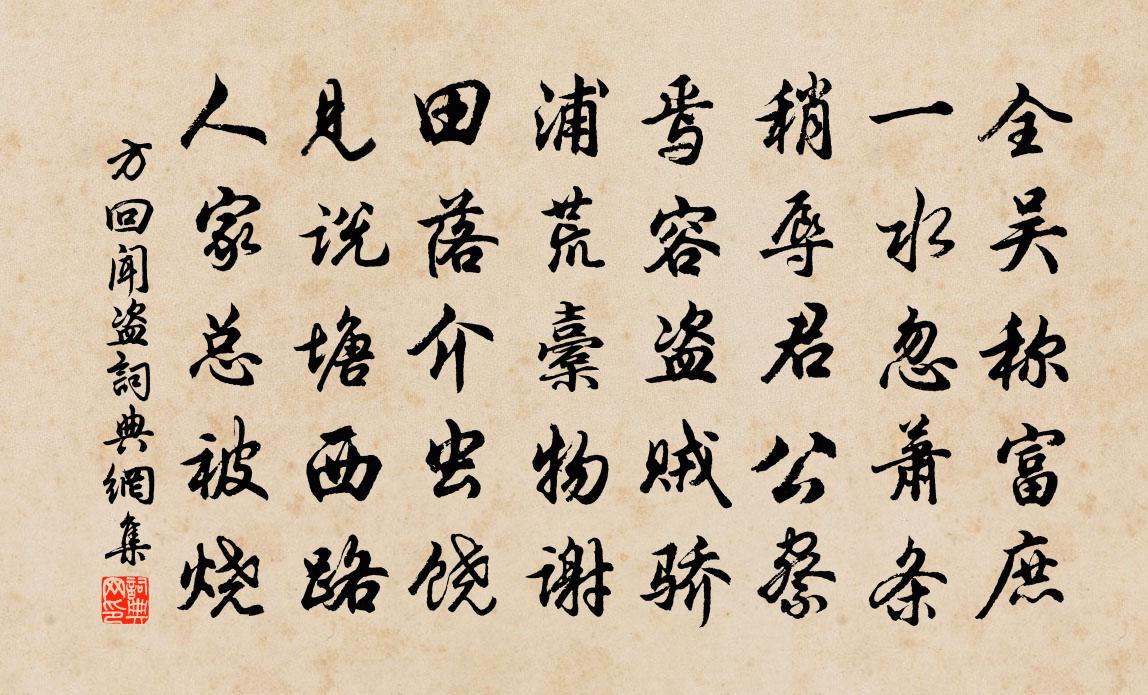 全吴称富庶
一水忽萧条
稍辱君公察
焉容盗贼骄
浦荒櫜物谢
田落介虫饶
见说塘西路
人家总被烧
方回闻盗詞典網集
詞典网印